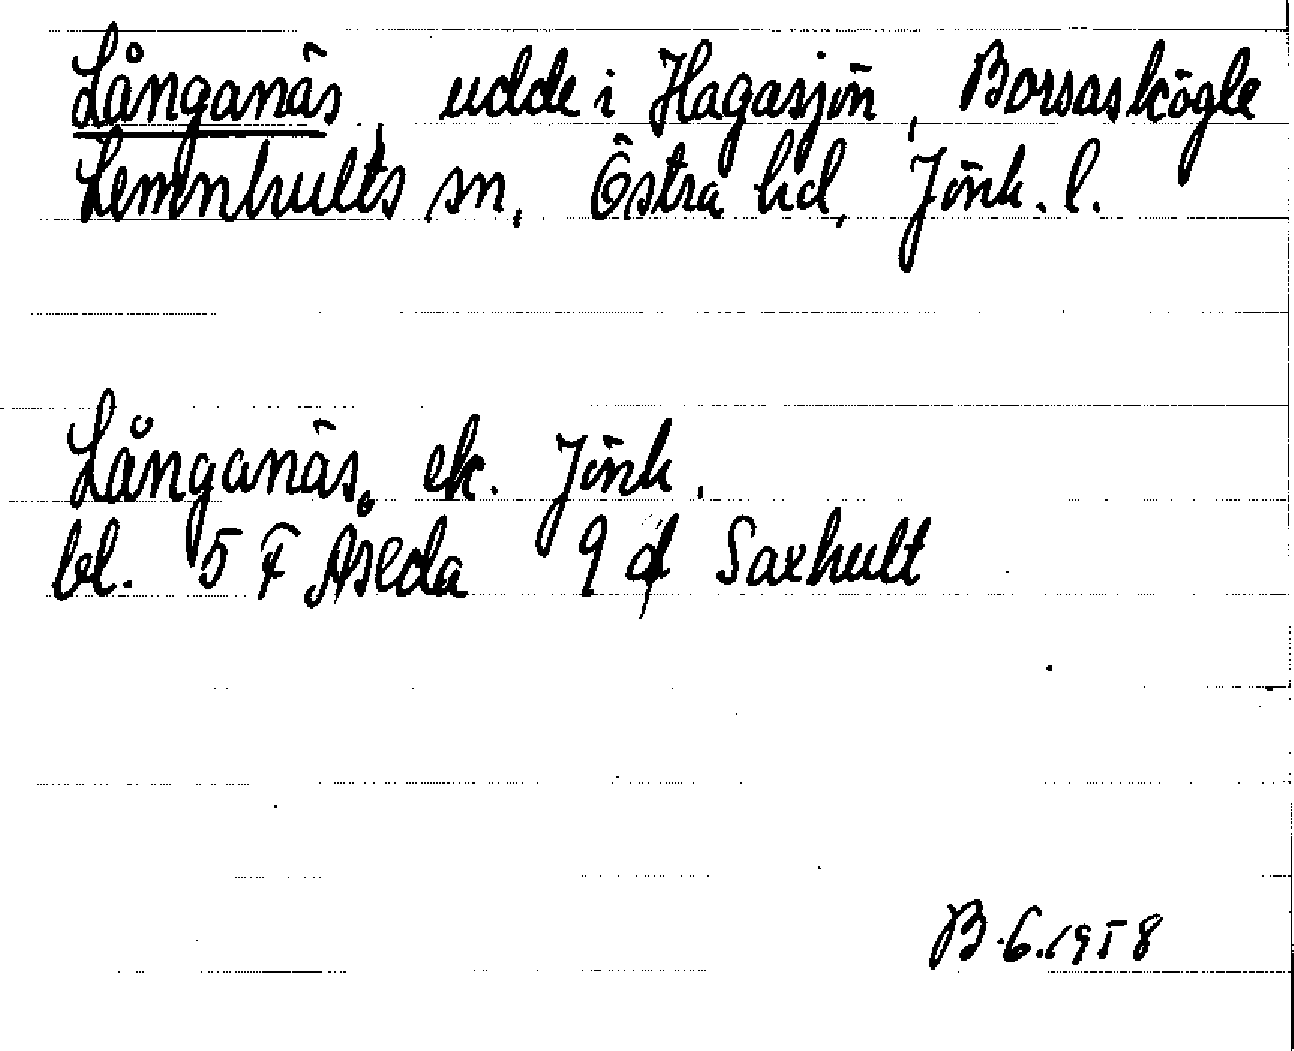 Långanäs, udde i Hagasjön, Borsaskögle
Lemnhults sn, Östra hd, Jönk. l.
Långanäs. ek. Jönk.
bl. 5 F Åseda 9 d Saxhult
B.6.1958